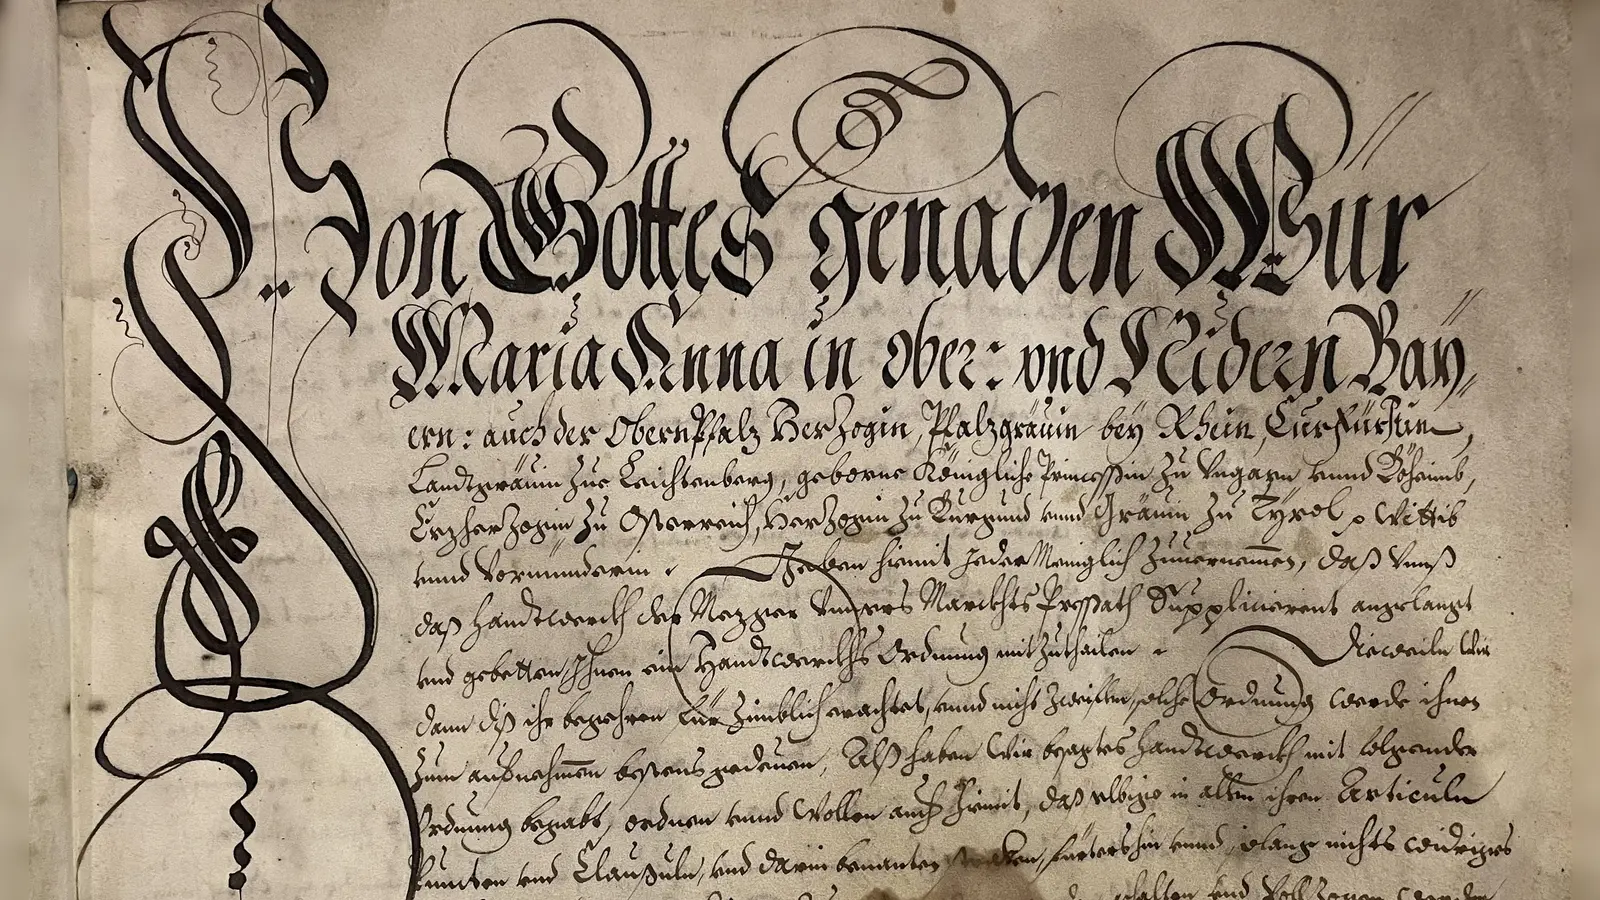 Von Gottes genaden Wür
Maria Anna in ober: vnd Nidern Bay,,
ern: auch der Obern Pfalz Herzogin, Pfalzgräuin bey Rhein, Curfürstin,
Landtgräuin Zue Leichtenberg, geborne Königliche Princessin Zu Vngarn vnnd Böheimb,
Erzherzogin Zu Össterreich, Herzogin Zu Burgund vnnd Gräuin Zu Tyrol, Wittib
vnnd Vormünderin Geben hiemit Jeder Meniglich Zuuernemmen, daß Vnnß
daß Handtwerckh der Mezger Vnsers Marckhts Pressath Supplicierent angelangt
vnd gebetten Ihnen ein Handtwerckhs Ordnung mitzuthailen Dieweiln Wir
dann diß ihr begehren für Zimblich erachtet, vnnd nicht Zweiflen, solche Ordnung werde ihnen
Zum aufnehmmen bestens gedeuen, Alß haben Wir besagtes Handtwerckh mit volgender
Ordnung begabt, ordnen vnnd Wollen auch hiemit, daß selbige in allen ihren Articuln
Puncten vnd Clausuln, vnd darin benanten fürtershin vnnd solang nichts widriges
halten vnd Vollzogen werden